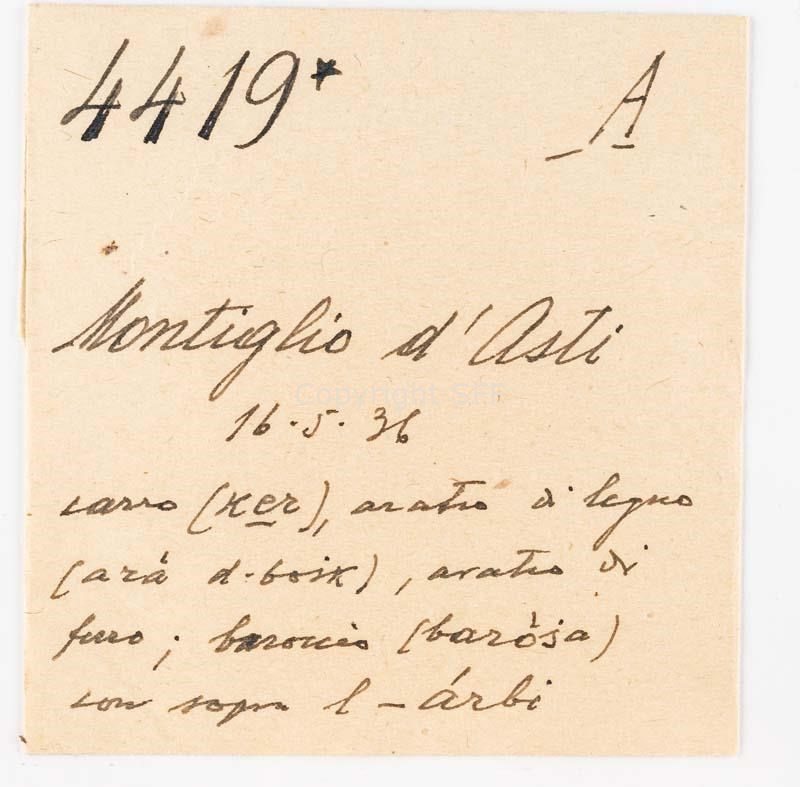 4419* A
Montiglio d'Asti
16.5.36
carro (ker), aratro di legno
(arà d-bosk), aratro di
ferro; baroccio (baròsa)
con sopra l-árbi